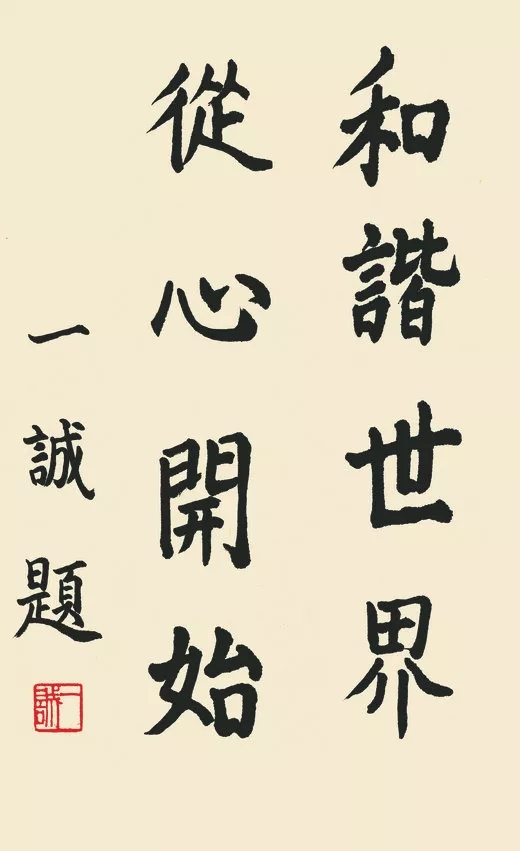 和諧世界
從心開始
一誠題
一誠